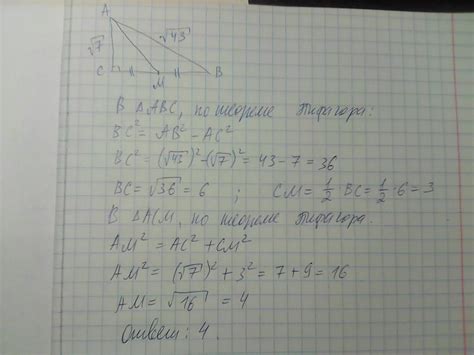 A
√7
√43
C
M
B
В △ABC, по теореме Пифагора:
BC² = AB² - AC²
BC² = (√43)² - (√7)² = 43 - 7 = 36
BC = √36 = 6 ; CM = 1/2 · BC = 1/2 · 6 = 3
В △ACM, по теореме Пифагора.
AM² = AC² + CM²
AM² = (√7)² + 3² = 7 + 9 = 16
AM = √16 = 4
Ответ: 4.